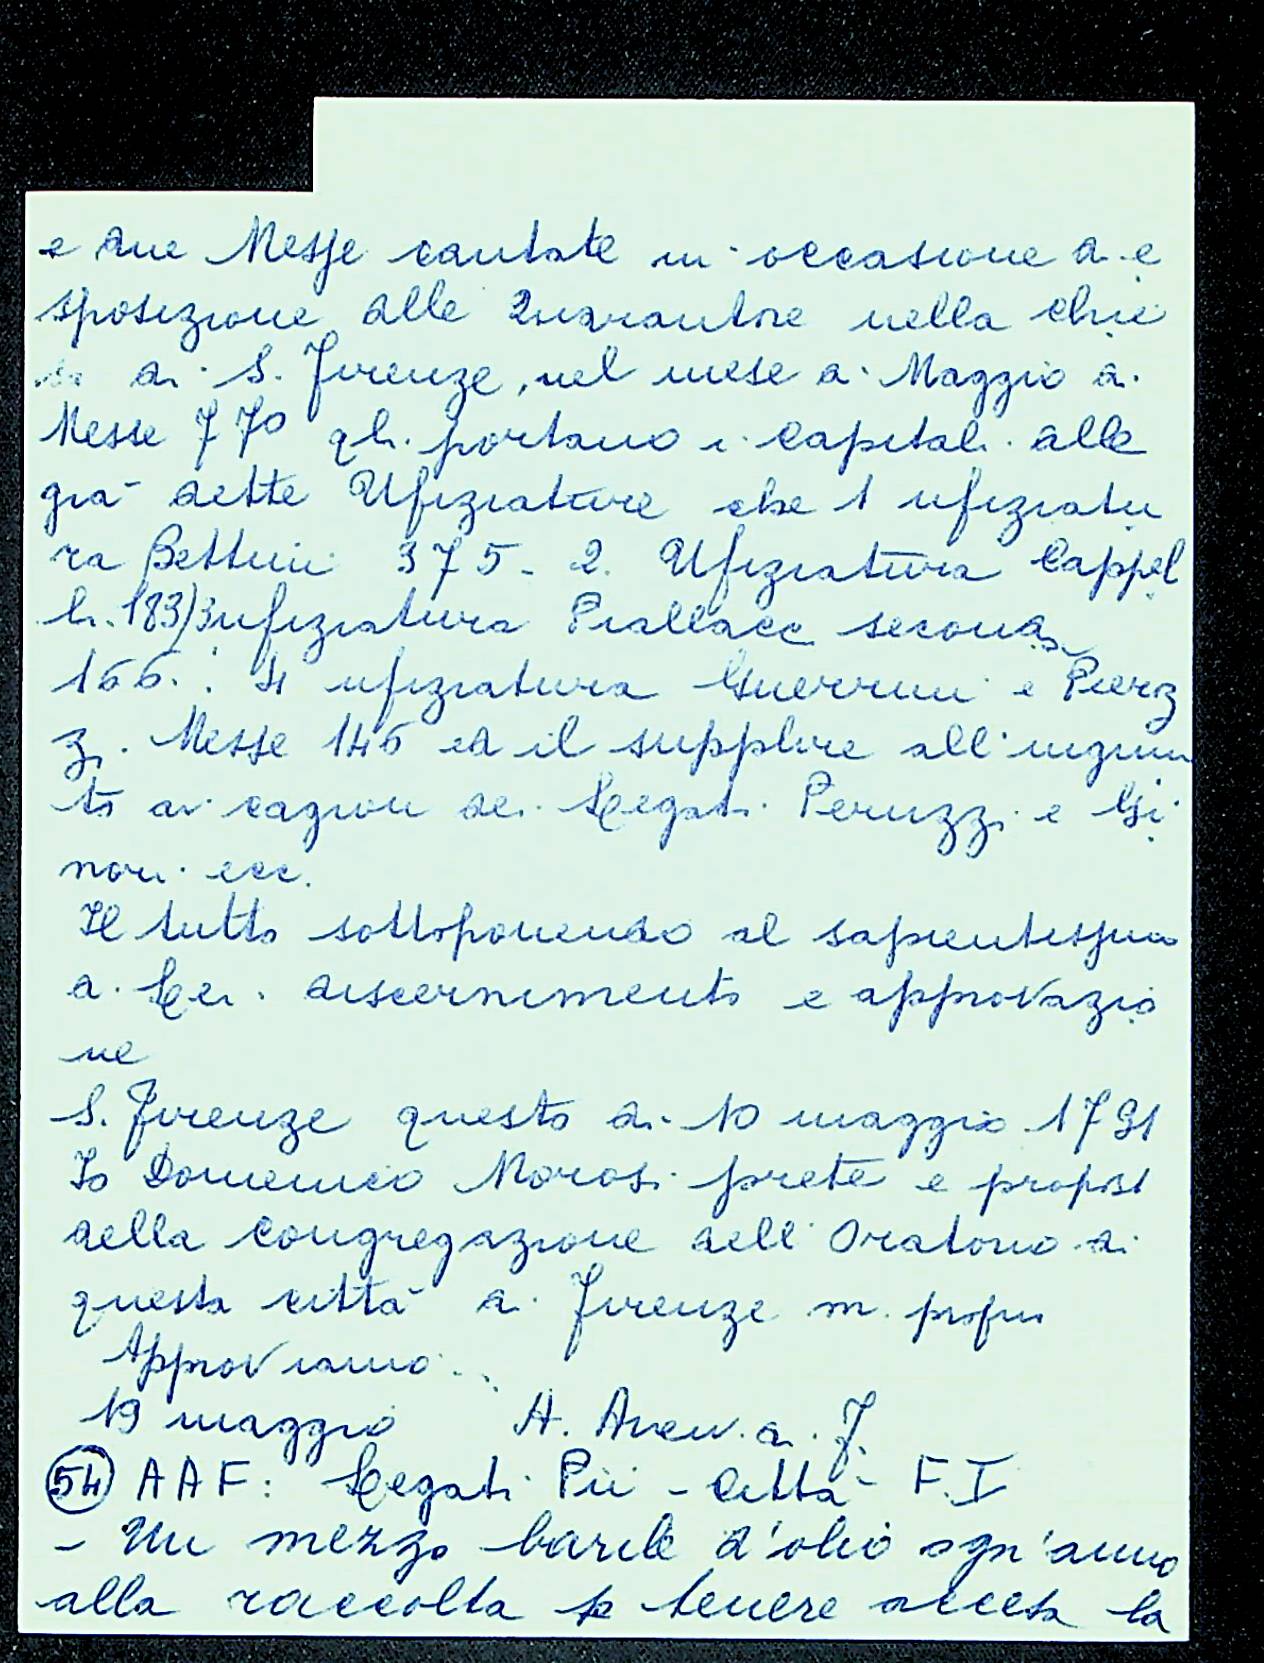 e due Messe cantate in occasione di e
sposizione alle Quarantore nella chie
sa di S. Firenze, nel mese di Maggio di
Messe 770 qli. portano i Capitali alle
già dette Ufiziature che 1 ufiziatu
ra Bettini 375 - 2. Ufiziatura Cappel
li. 183) 3 ufiziatura Piallacc seconda
166. : 4 ufiziatura Guerrini e Pieriz
zi. Messe 146 ed il supplire all'ingiun
to di cagion dei Legati Peruzzi e Gi
nori ecc.
Il tutto sottoponendo al sapientissimo
di Lei discernimento e approvazio
ne
S. Firenze questo dì 10 maggio 1791
Io Domenico Morosi prete e propost
della Congregazione dell'Oratorio di
questa città di Firenze m. propri
Approviamo..
19 maggio A. Arciv. di F.
54 AAF: Legati Pii - Città - F. I
- Un mezzo barile d'olio ogn'anno
alla raccolta p tenere accesa la